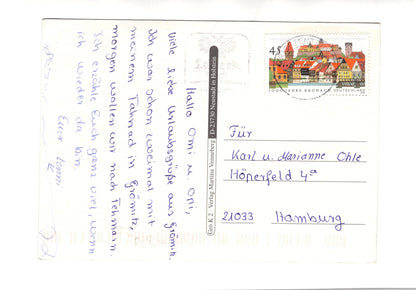 Hallo Omi u. Opi,
viele liebe Urlaubsgrüße aus Grömitz.
Ich war schon zweimal mit
meinem Fahrrad in Grömitz,
morgen wollen wir nach Fehmarn.
Ich erzähle Euch ganz viel, wenn
ich wieder da bin.
Euer
Geo K 2 - Verlag Martina Venneberg
D-23730 Neustadt in Holstein
45
1000 JAHRE KRONACH DEUTSCHLAND
Für
Karl u. Marianne Ohle
Höperfeld 4a
21033 Hamburg